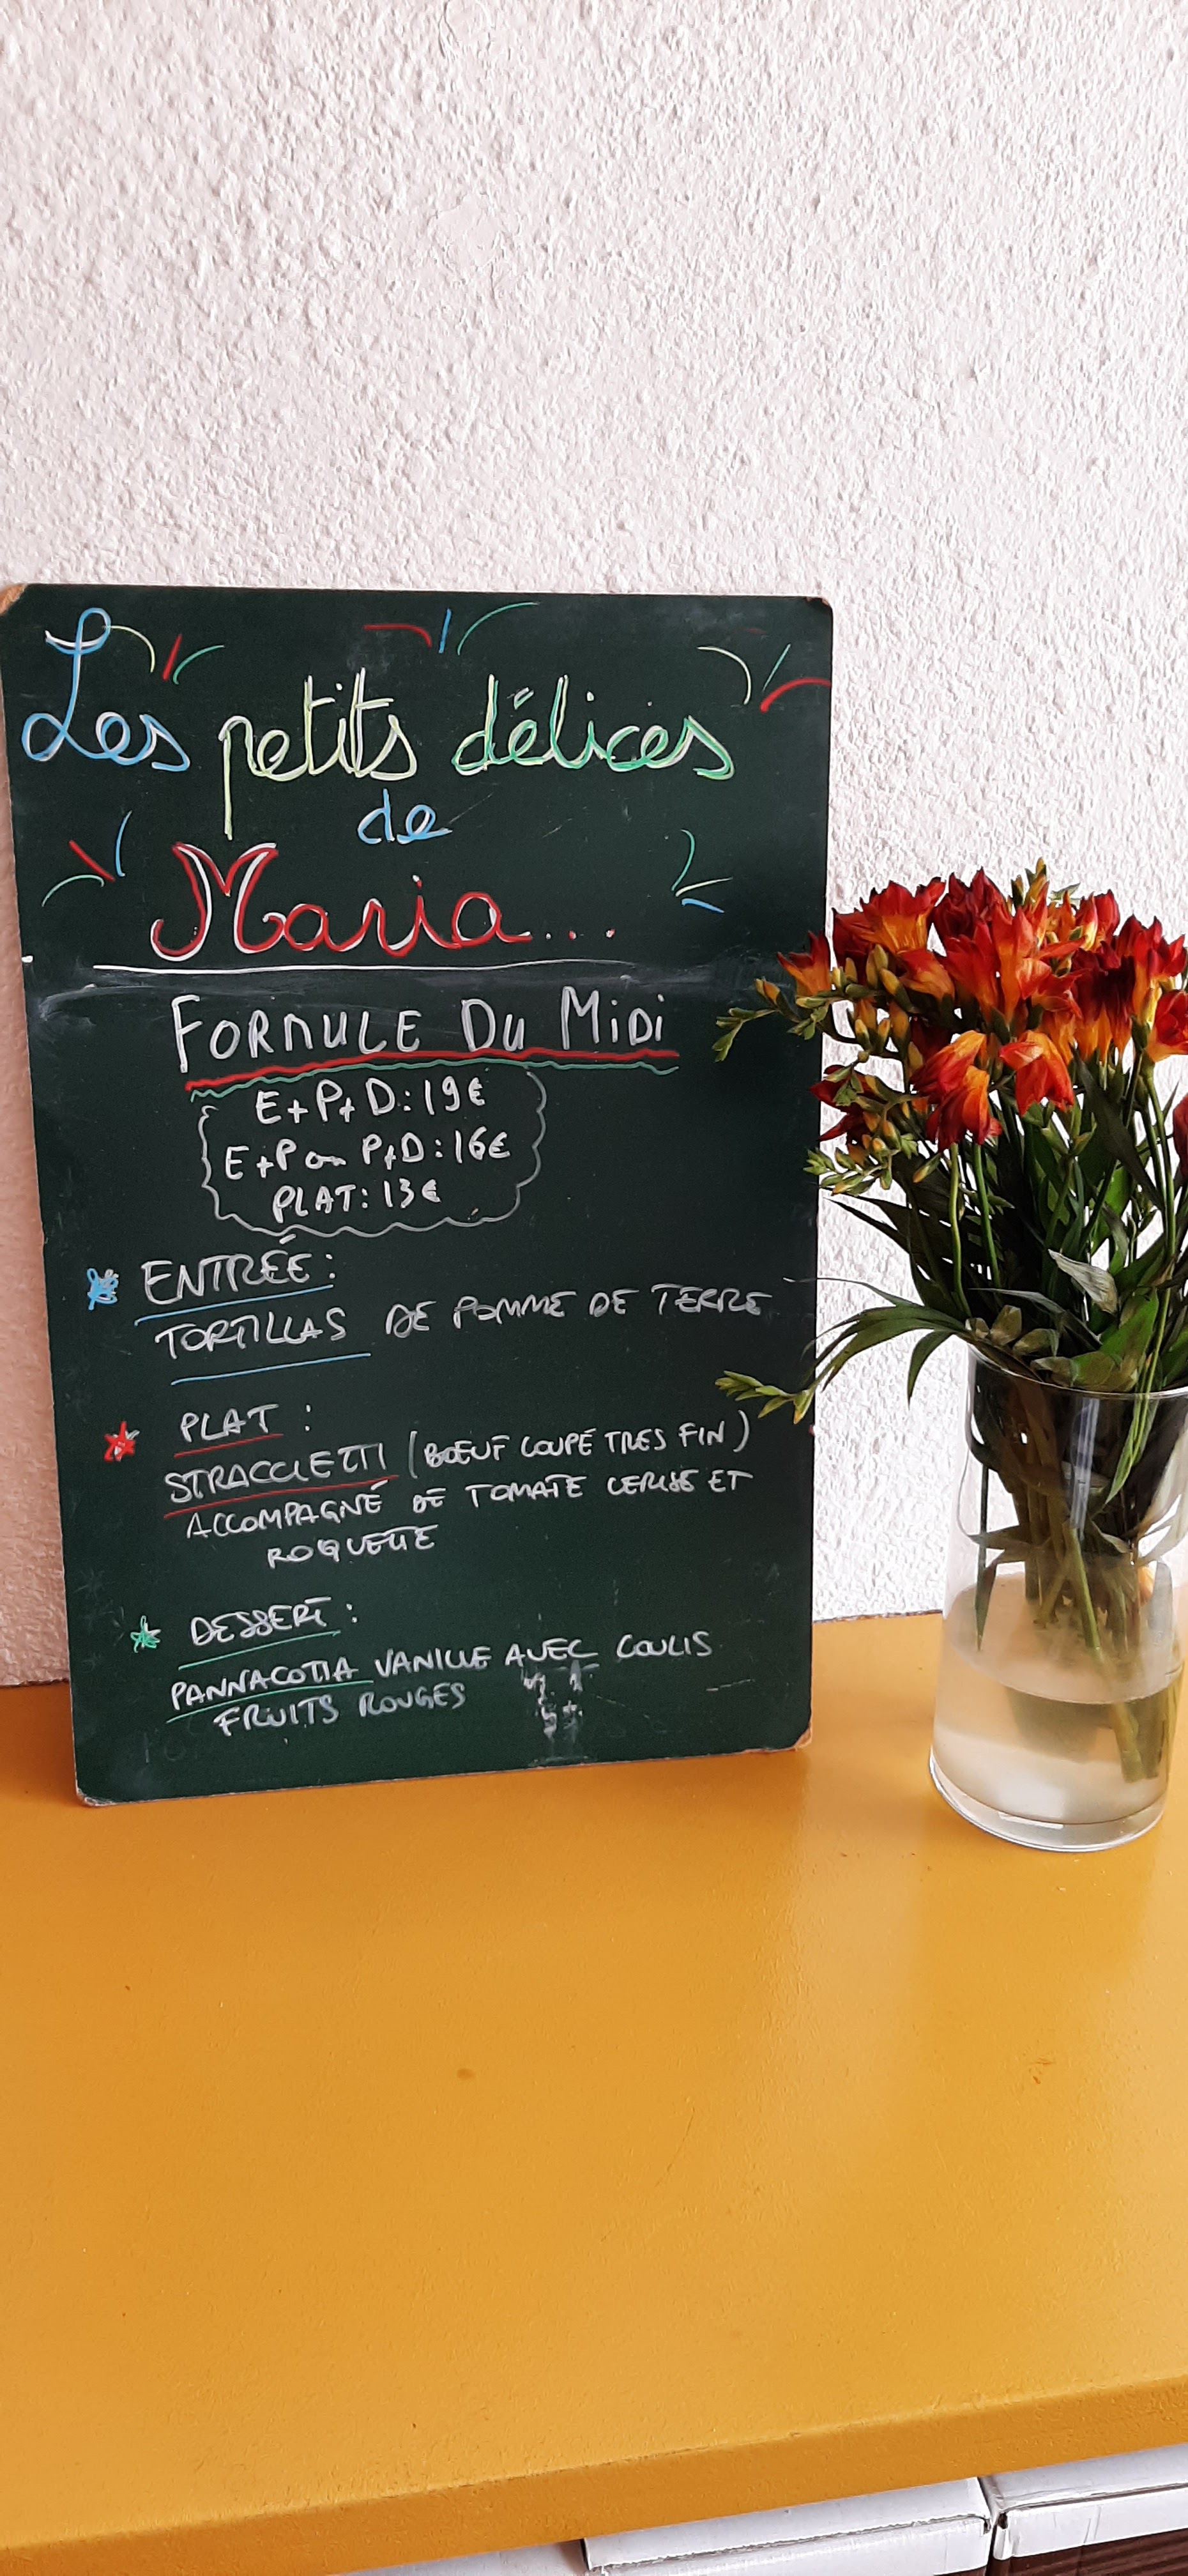 Les petits délices
de
Maria...
FORMULE DU MiDi
E+P+D: 19€
E+P ou P+D: 16€
PLAT: 13€
ENTRÉE:
TORTILLAS DE POMME DE TERRE
PLAT:
STRACCIETTI (BŒUF COUPÉ TRES FIN)
ACCOMPAGNÉ DE TOMATE CERISE ET
ROQUETTE
DESSERT:
PANNACOTTA VANILLE AVEC COULIS
FRUITS ROUGES